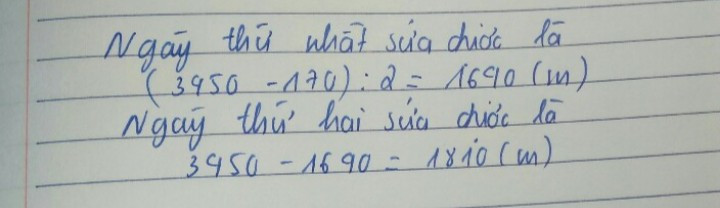 Ngày thứ nhất sửa được là
(3450 - 170) : 2 = 1640 (m)
Ngày thứ hai sửa được là
3450 - 1640 = 1810 (m)